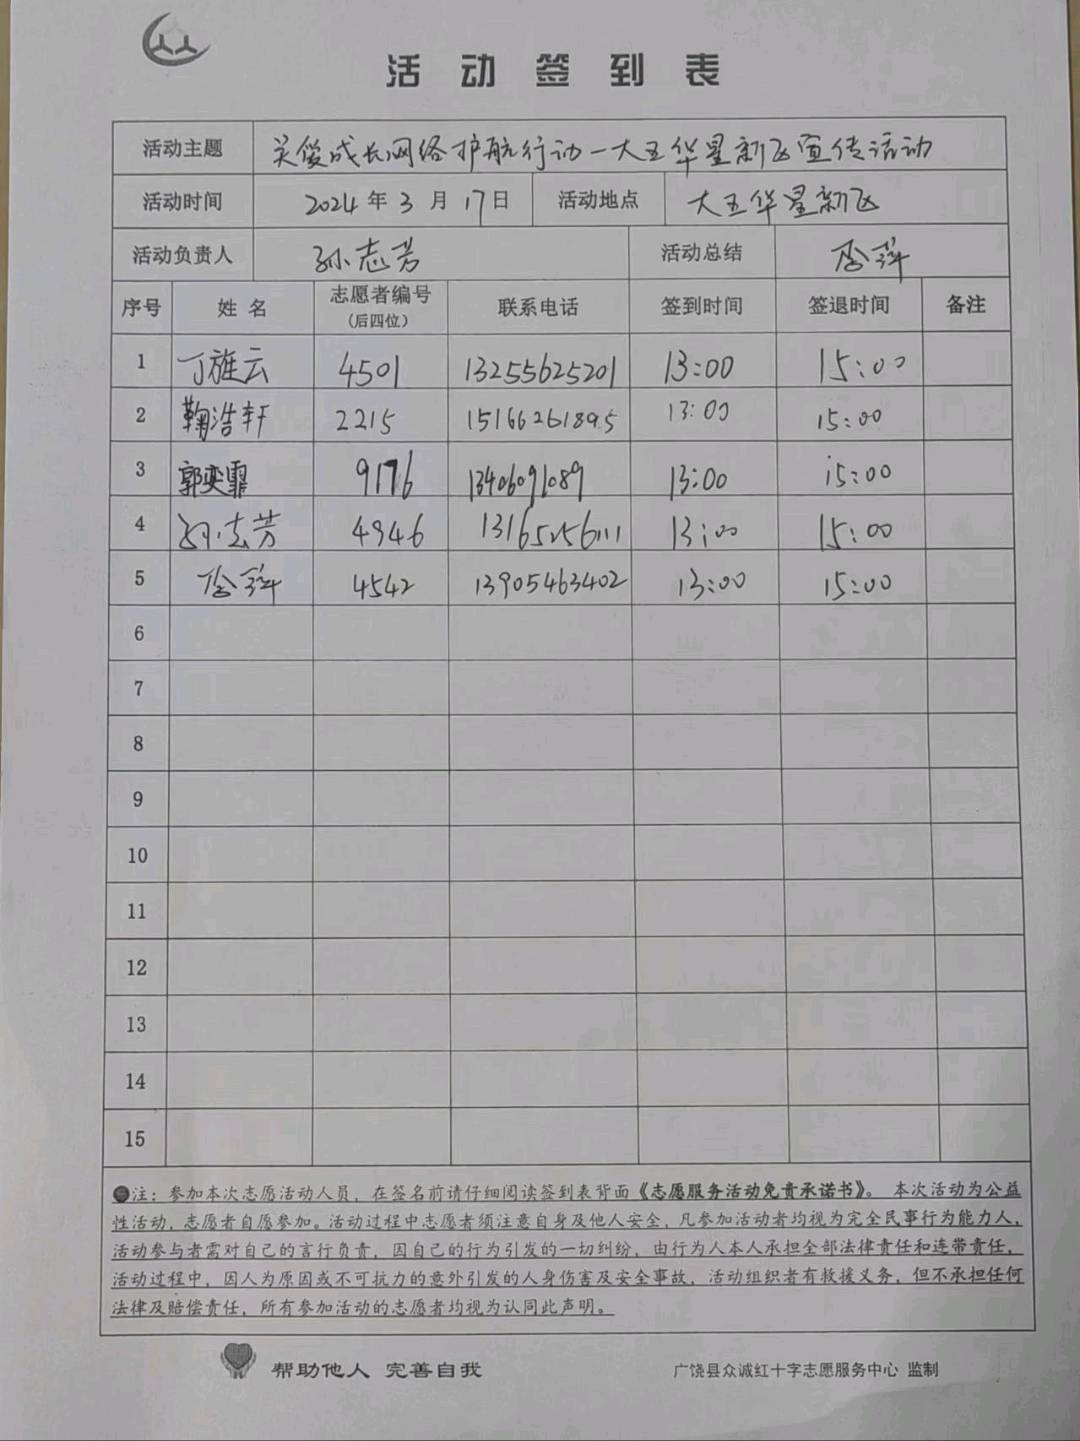 活动签到表
活动主题 关爱成长网络护航行动一大王华星新飞宣传活动
活动时间 2024年3月17日 活动地点 大王华星新飞
活动负责人 孙志芳 活动总结
序号 姓名 志愿者编号(后四位) 联系电话 签到时间 签退时间 备注
1 丁旌云 4501 13255625201 13:00 15:00
2 鞠浩轩 2215 15166261895 13:00 15:00
3 郭奕霏 9176 13406091089 13:00 15:00
4 孙志芳 4946 13:00 15:00
5 4542 13905463402 13:00 15:00
6
7
8
9
10
11
12
13
14
15
注：参加本次志愿活动人员，在签名前请仔细阅读签到表背面《志愿服务活动免责承诺书》。本次活动为公益
性活动，志愿者自愿参加。活动过程中志愿者须注意自身及他人安全，凡参加活动者均视为完全民事行为能力人，
活动参与者需对自己的言行负责，因自己的行为引发的一切纠纷，由行为人本人承担全部法律责任和连带责任，
活动过程中，因人为原因或不可抗力的意外引发的人身伤害及安全事故，活动组织者有救援义务，但不承担任何
法律及赔偿责任，所有参加活动的志愿者均视为认同此声明。
帮助他人 完善自我 广饶县众诚红十字志愿服务中心 监制